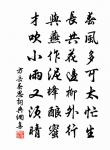 春風多可太忙生
長共花邊柳外行
與燕作泥蜂釀蜜
才吹小雨又須晴
方岳春思詞典網書